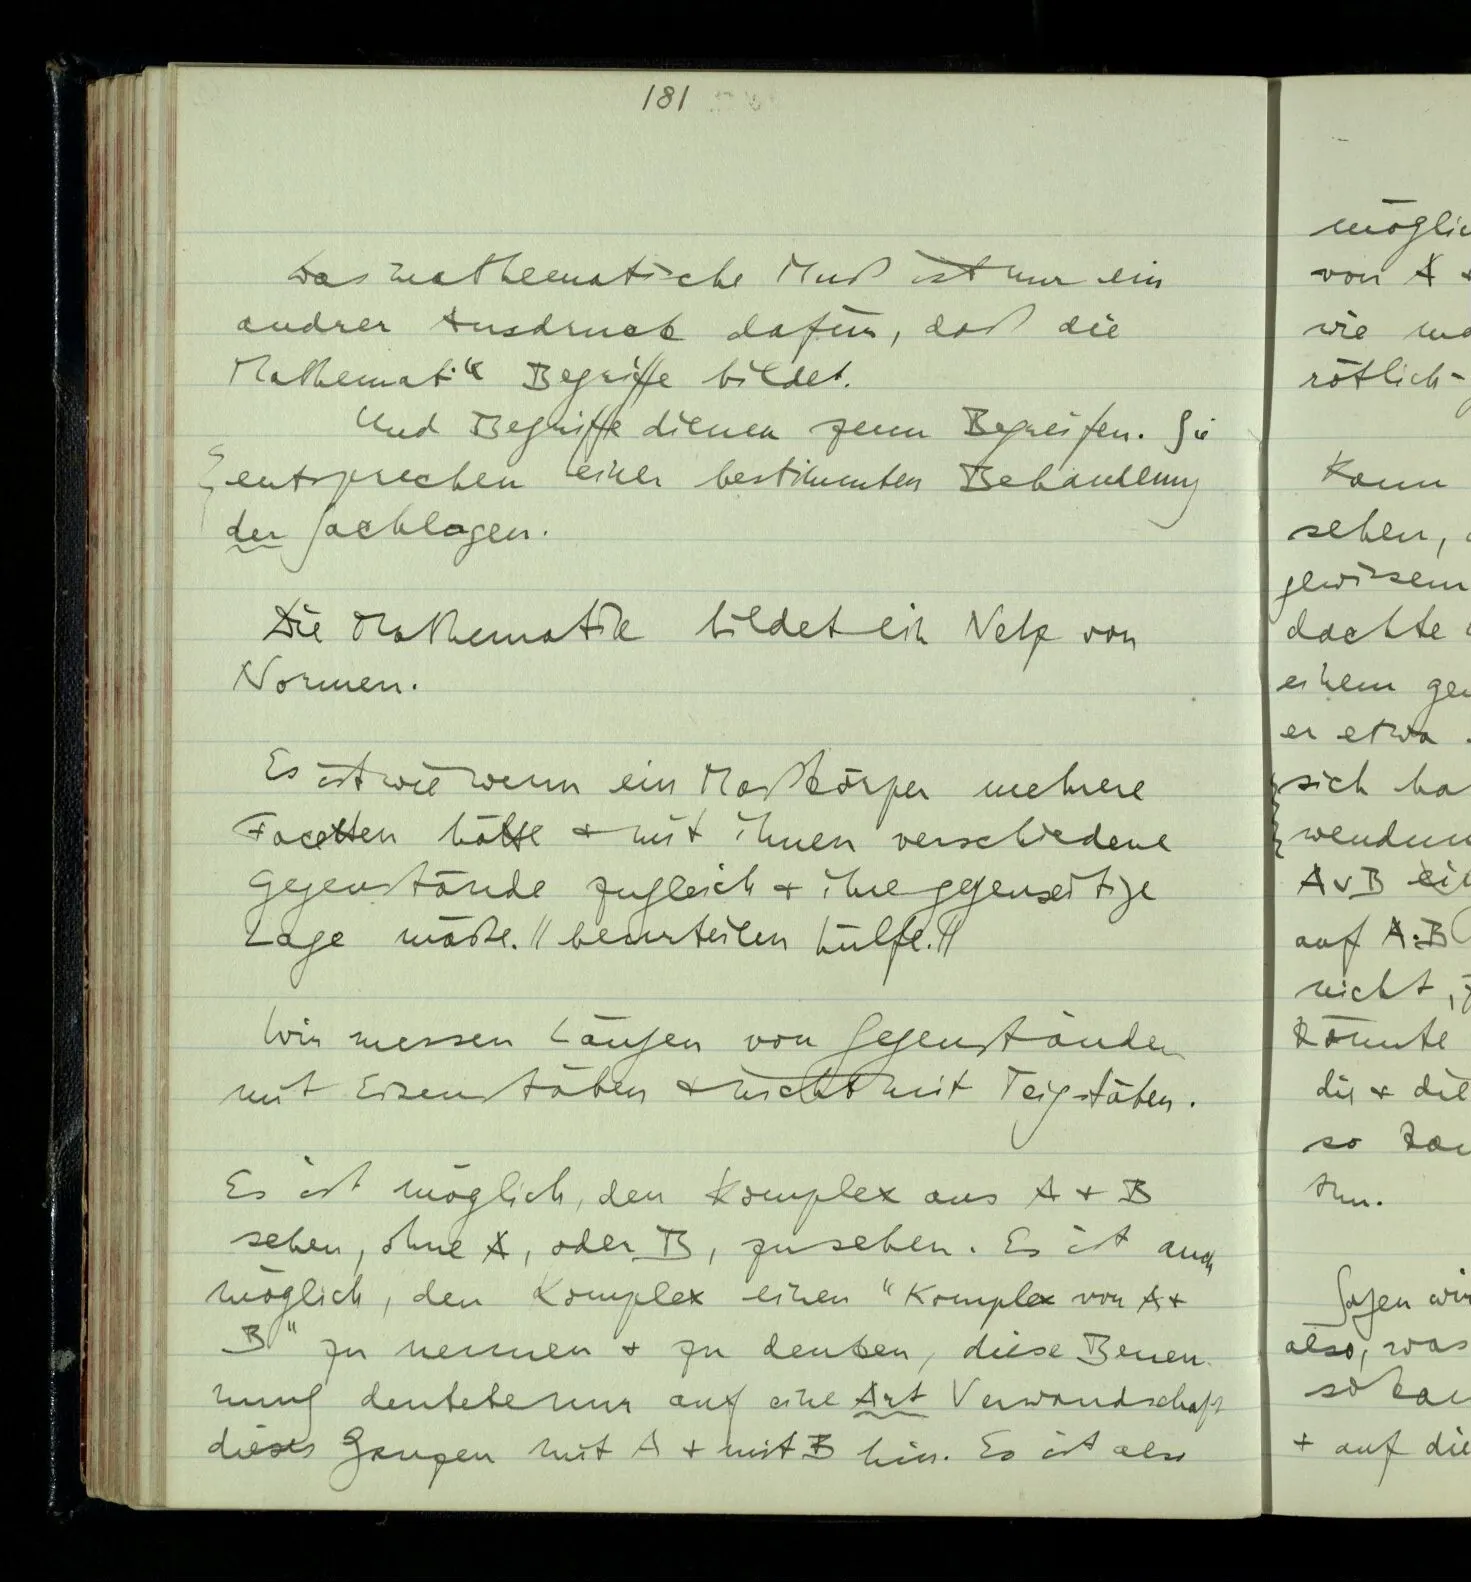 181
Das mathematische Muß ist nur ein
andrer Ausdruck dafür, daß die
Mathematik Begriffe bildet.
Und Begriffe dienen zum Begreifen. Sie
entsprechen einer bestimmten Behandlung
der Sachlagen.
Die Mathematik bildet ein Netz von
Normen.
Es ist wie wenn ein Maßkörper mehrere
Facetten hätte + mit ihnen verschiedene
Gegenstände zugleich + ihre gegenseitige
Lage mäße. // beurteilen hülfe. //
Wir messen Längen von Gegenständen
mit Eisenstäben + nicht mit Teigstäben.
Es ist möglich, den Komplex aus A + B
sehen, ohne A, oder B, zu sehen. Es ist auch
möglich, den Komplex einen "Komplex von A +
B" zu nennen + zu denken, diese Benen-
nung deutete nur auf eine Art Verwandschaft
dieses Ganzen mit A + mit B hin. Es ist also
möglic
von A +
wie
rötlich-
Kann
sehen,
gewissem
dachte
einem
er etwa
sich
A v B
auf A.B
nicht,
könnte
die + die
so
tun.
Sagen wir
also, was
so
+ auf die